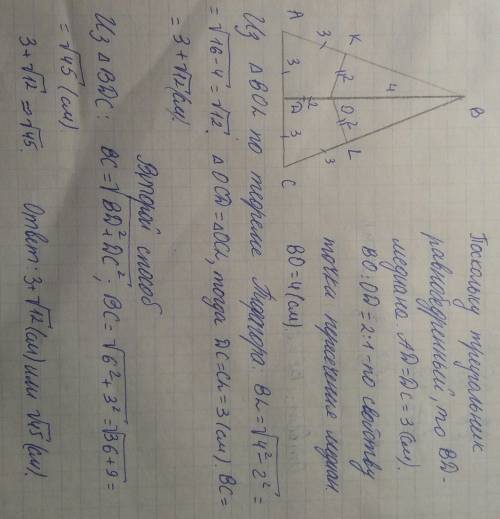 Поскольку треугольник
равнобедренный, то BD-
медиана. AD=DC=3(см).
BO:OD=2:1-по свойству
точки пересечения медиан.
BO=4(см).
A
3
K
3
2
4
B
D
2
O
2
3
L
3
C
Из ΔBOL по теореме Пифагора: BL=√4²-2²=
=√16-4=√12. ΔOCD=ΔOCL, тогда DC=CL=3(см). BC=
=3+√12(см).
Второй способ
Из ΔBDC: BC=√BD²+DC²; BC=√6²+3²=√36+9=
=√45 (см)
3+√12 ⇒√45. Ответ: 3+√12(см) или √45(см).